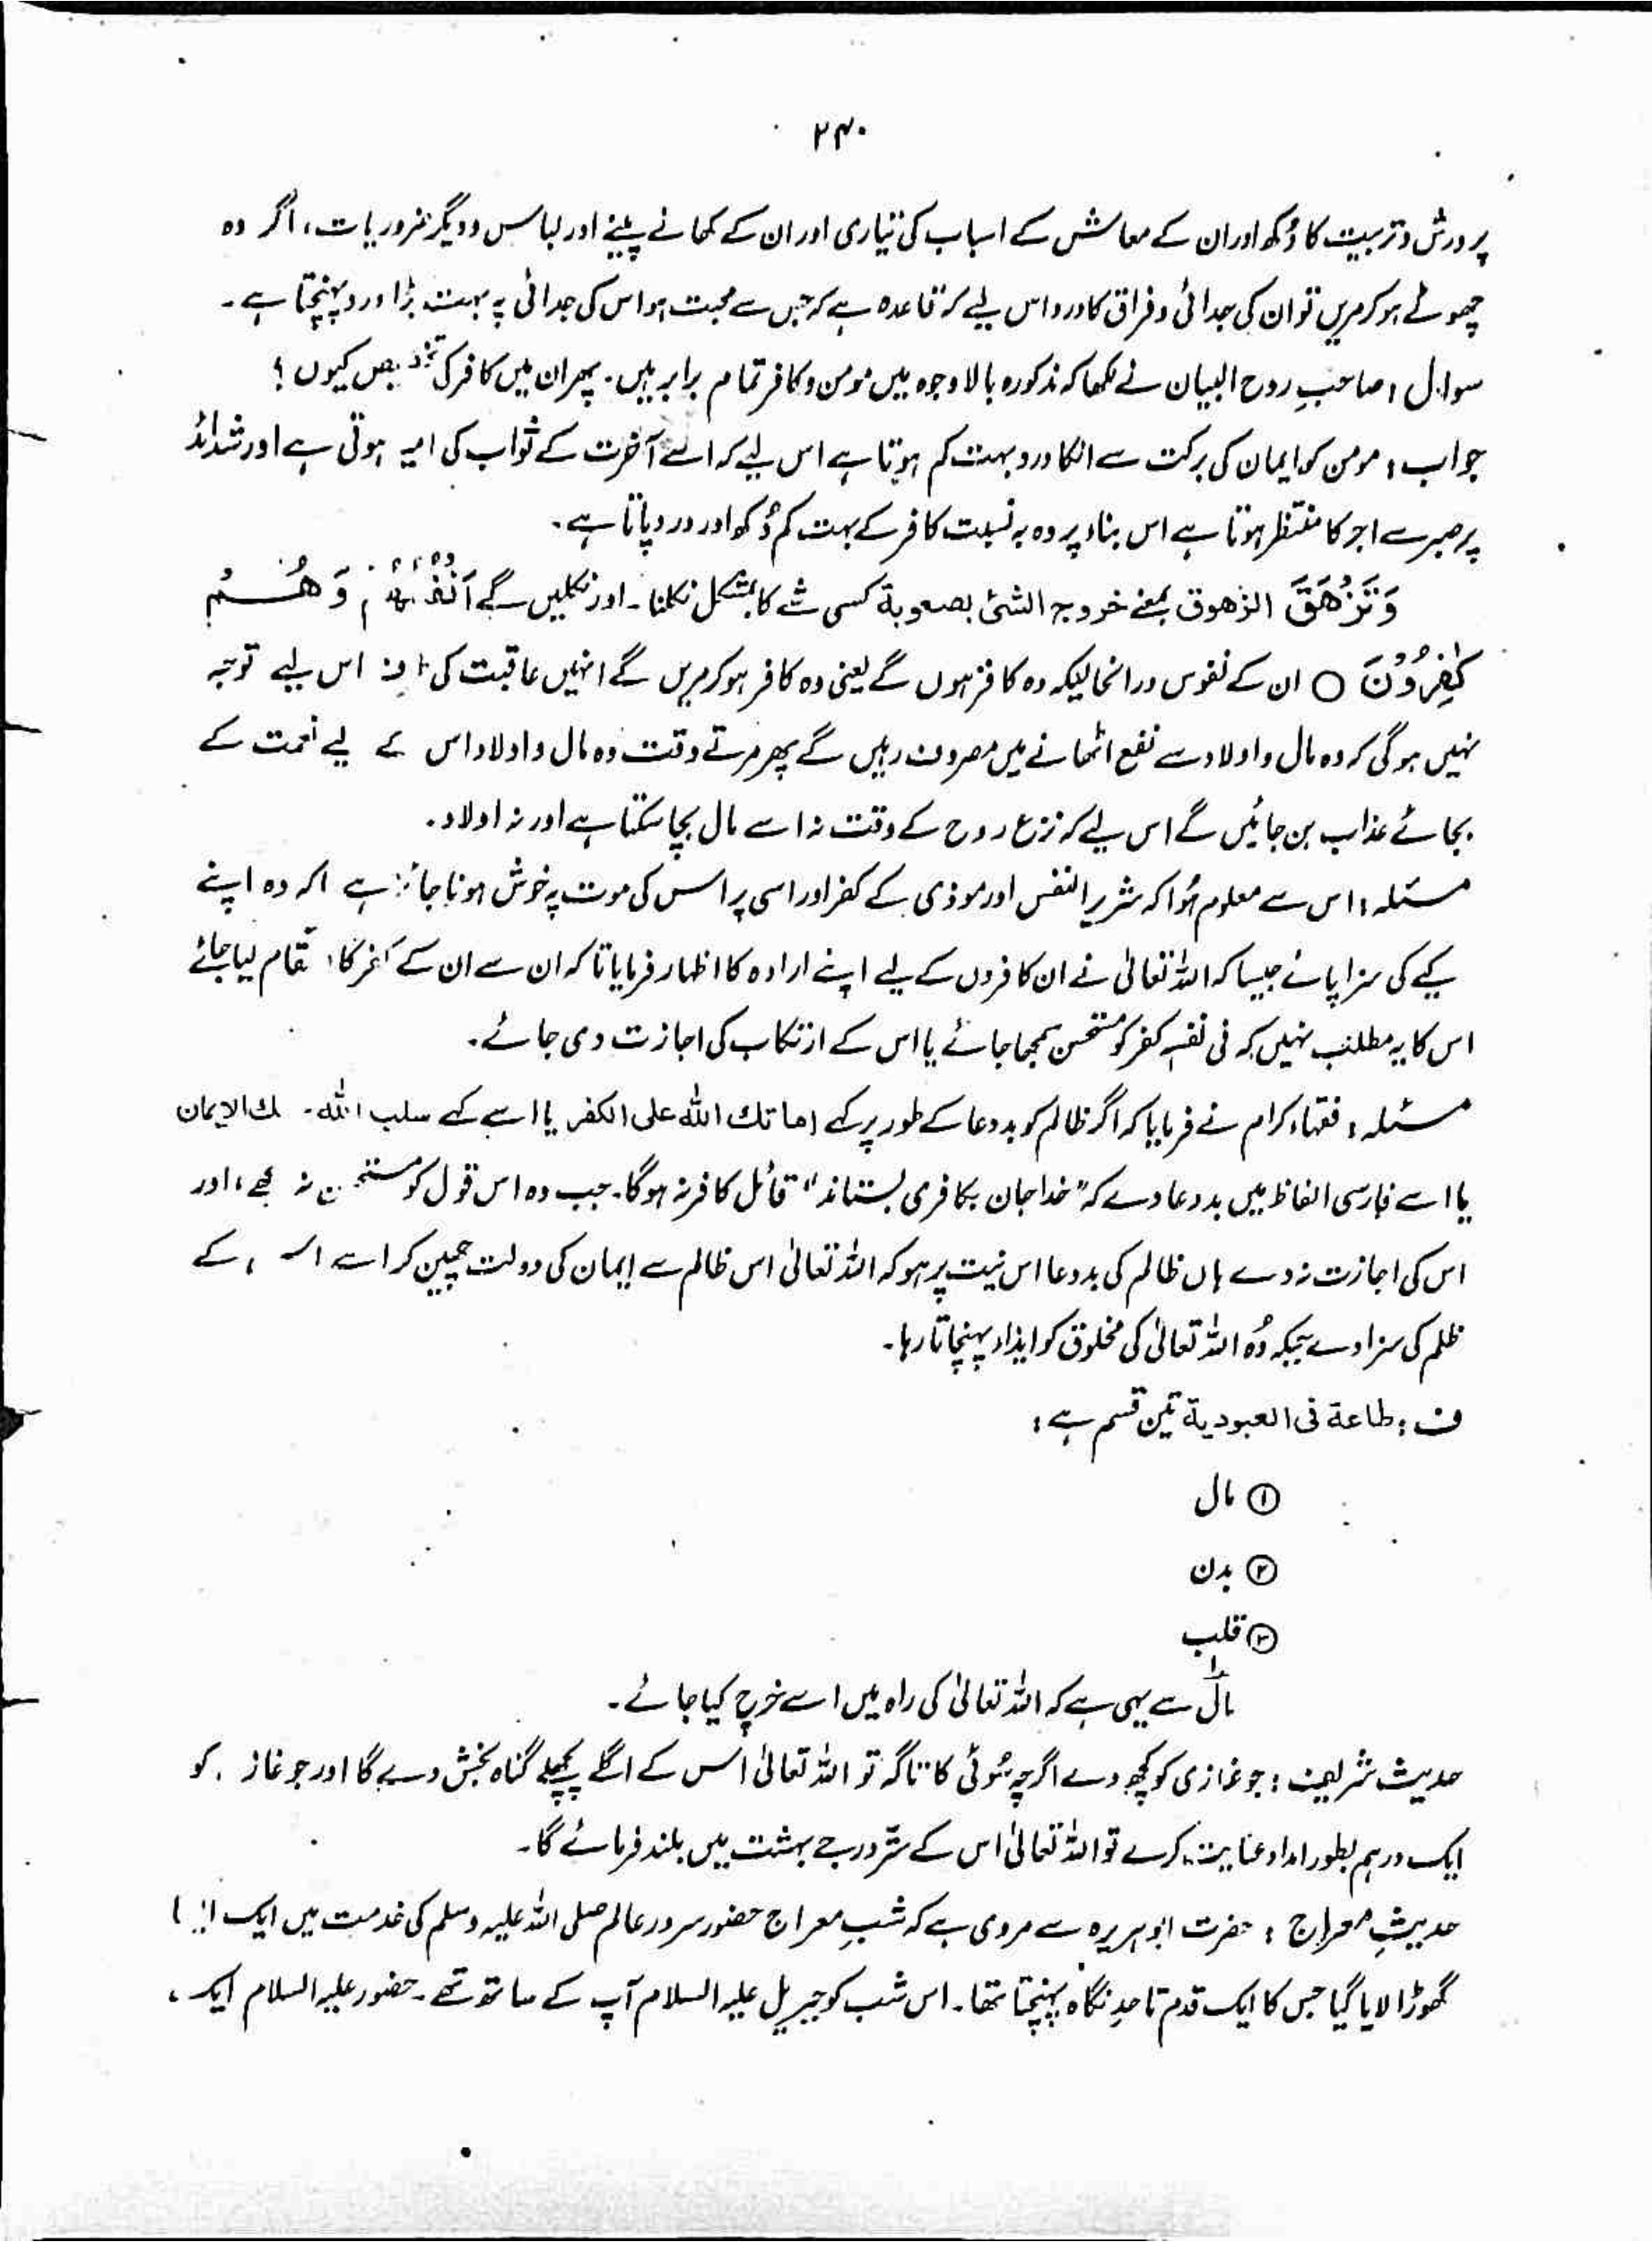 ۲۴۰
پرورش و تربیت کا دُکھ اور ان کے معاشں کے اسباب کی تیاری اور ان کے کھانے پینے اور لباس و دیگر ضروریات، اگر وہ
چھوٹے ہو کر مریں تو ان کی جدائی و فراق کا درد اس لیے کہ قاعدہ ہے کہ جس سے محبت ہو اس کی جدائی پہ بہت بڑا درد پہنچتا ہے۔
سوال : صاحبِ روح البیان نے لکھا کہ مذکورہ بالا وجوہ میں مومن و کافر تمام برابر ہیں۔ پھر ان میں کافر کی تخصیص کیوں ؟
جواب : مومن کو ایمان کی برکت سے انکا درد بہت کم ہوتا ہے اس لیے کہ اسے آخرت کے ثواب کی امید ہوتی ہے اور شدائد
پر صبر سے اجر کا منتظر ہوتا ہے اس بناء پر وہ بہ نسبت کافر کے بہت کم دُکھ اور درد پاتا ہے۔
وَتَزْهَقَ الزھوق بمعنے خروج الشئ بصعوبة کسی شے کا بمشکل نکلنا۔ اور نکلیں گے اَنْفُسُهُمْ وَهُـــمْ
كٰفِرُوْنَ ○ ان کے نفوس درانحالیکہ وہ کافر ہوں گے یعنی وہ کافر ہو کر مریں گے انہیں عاقبت کی اس لیے توجہ
نہیں ہو گی کہ وہ مال و اولاد سے نفع اٹھانے میں مصروف رہیں گے پھر مرتے وقت وہ مال و اولاد اس کے لیے نعمت کے
بجائے عذاب بن جائیں گے اس لیے کہ نزع روح کے وقت نہ اسے مال بچا سکتا ہے اور نہ اولاد۔
مسئلہ : اس سے معلوم ہُوا کہ شریر النفس اور موذی کے کفر اور اسی پر اس کی موت پہ خوش ہونا جائز ہے اکہ وہ اپنے
کیے کی سزا پائے جیسا کہ اللہ تعالیٰ نے ان کافروں کے لیے اپنے ارادہ کا اظہار فرمایا تاکہ ان سے ان کے کفر کا انتقام لیا جائے
اس کا یہ مطلب نہیں کہ فی نفسہٖ کفر کو مستحسن سمجھا جائے یا اس کے ارتکاب کی اجازت دی جائے۔
مسئلہ : فقہاء کرام نے فرمایا کہ اگر ظالم کو بددعا کے طور پر کہے اماتك اللہ علی الکفر یا اسے کہے سلب اللہ ك الایمان
یا اسے فارسی الفاظ میں بددعا دے کہ "خدا جان بکافری بستاند" قائل کافر نہ ہوگا۔ جب وہ اس قول کو مستحسن نہ سمجھے، اور
اس کی اجازت نہ دے ہاں ظالم کی بددعا اس نیت پر ہو کہ اللہ تعالیٰ اس ظالم سے ایمان کی دولت چھین کر اسے اس کے
ظلم کی سزا دے جبکہ وُہ اللہ تعالیٰ کی مخلوق کو ایذاء پہنچاتا رہا۔
ف : طاعة فی العبودية تین قسم ہے :
① مال
② بدن
③ قلب
مال سے یہی ہے کہ اللہ تعالیٰ کی راہ میں اسے خرچ کیا جائے۔
حدیث شریف : جو غازی کو کچھ دے اگرچہ سُوئی کا تاگہ تو اللہ تعالیٰ اس کے اگلے پچھلے گناہ بخش دے گا اور جو غازی کو
ایک درہم بطور امداد عنایت کرے تو اللہ تعالیٰ اس کے ستّر درجے بہشت میں بلند فرمائے گا۔
حدیثِ معراج : حضرت ابوہریرہ سے مروی ہے کہ شبِ معراج حضور سرور عالم صلی اللہ علیہ وسلم کی خدمت میں ایک ایسا
گھوڑا لایا گیا جس کا ایک قدم تا حدِ نگاہ پہنچتا تھا۔ اس شب کو جبریل علیہ السلام آپ کے ساتھ تھے۔ حضور علیہ السلام ایک